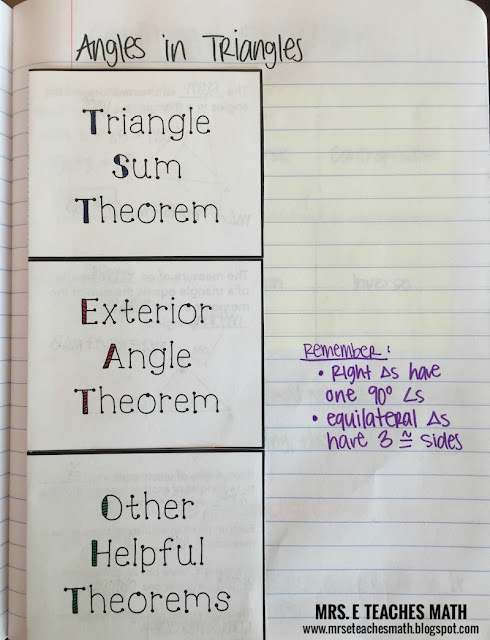 Angles in Triangles
Triangle
Sum
Theorem
Exterior
Angle
Theorem
Remember:
• Right Δs have
one 90° ∠s
• equilateral Δs
have 3 ≅ sides
Other
Helpful
Theorems
MRS. E TEACHES MATH
www.mrseteachesmath.blogspot.com